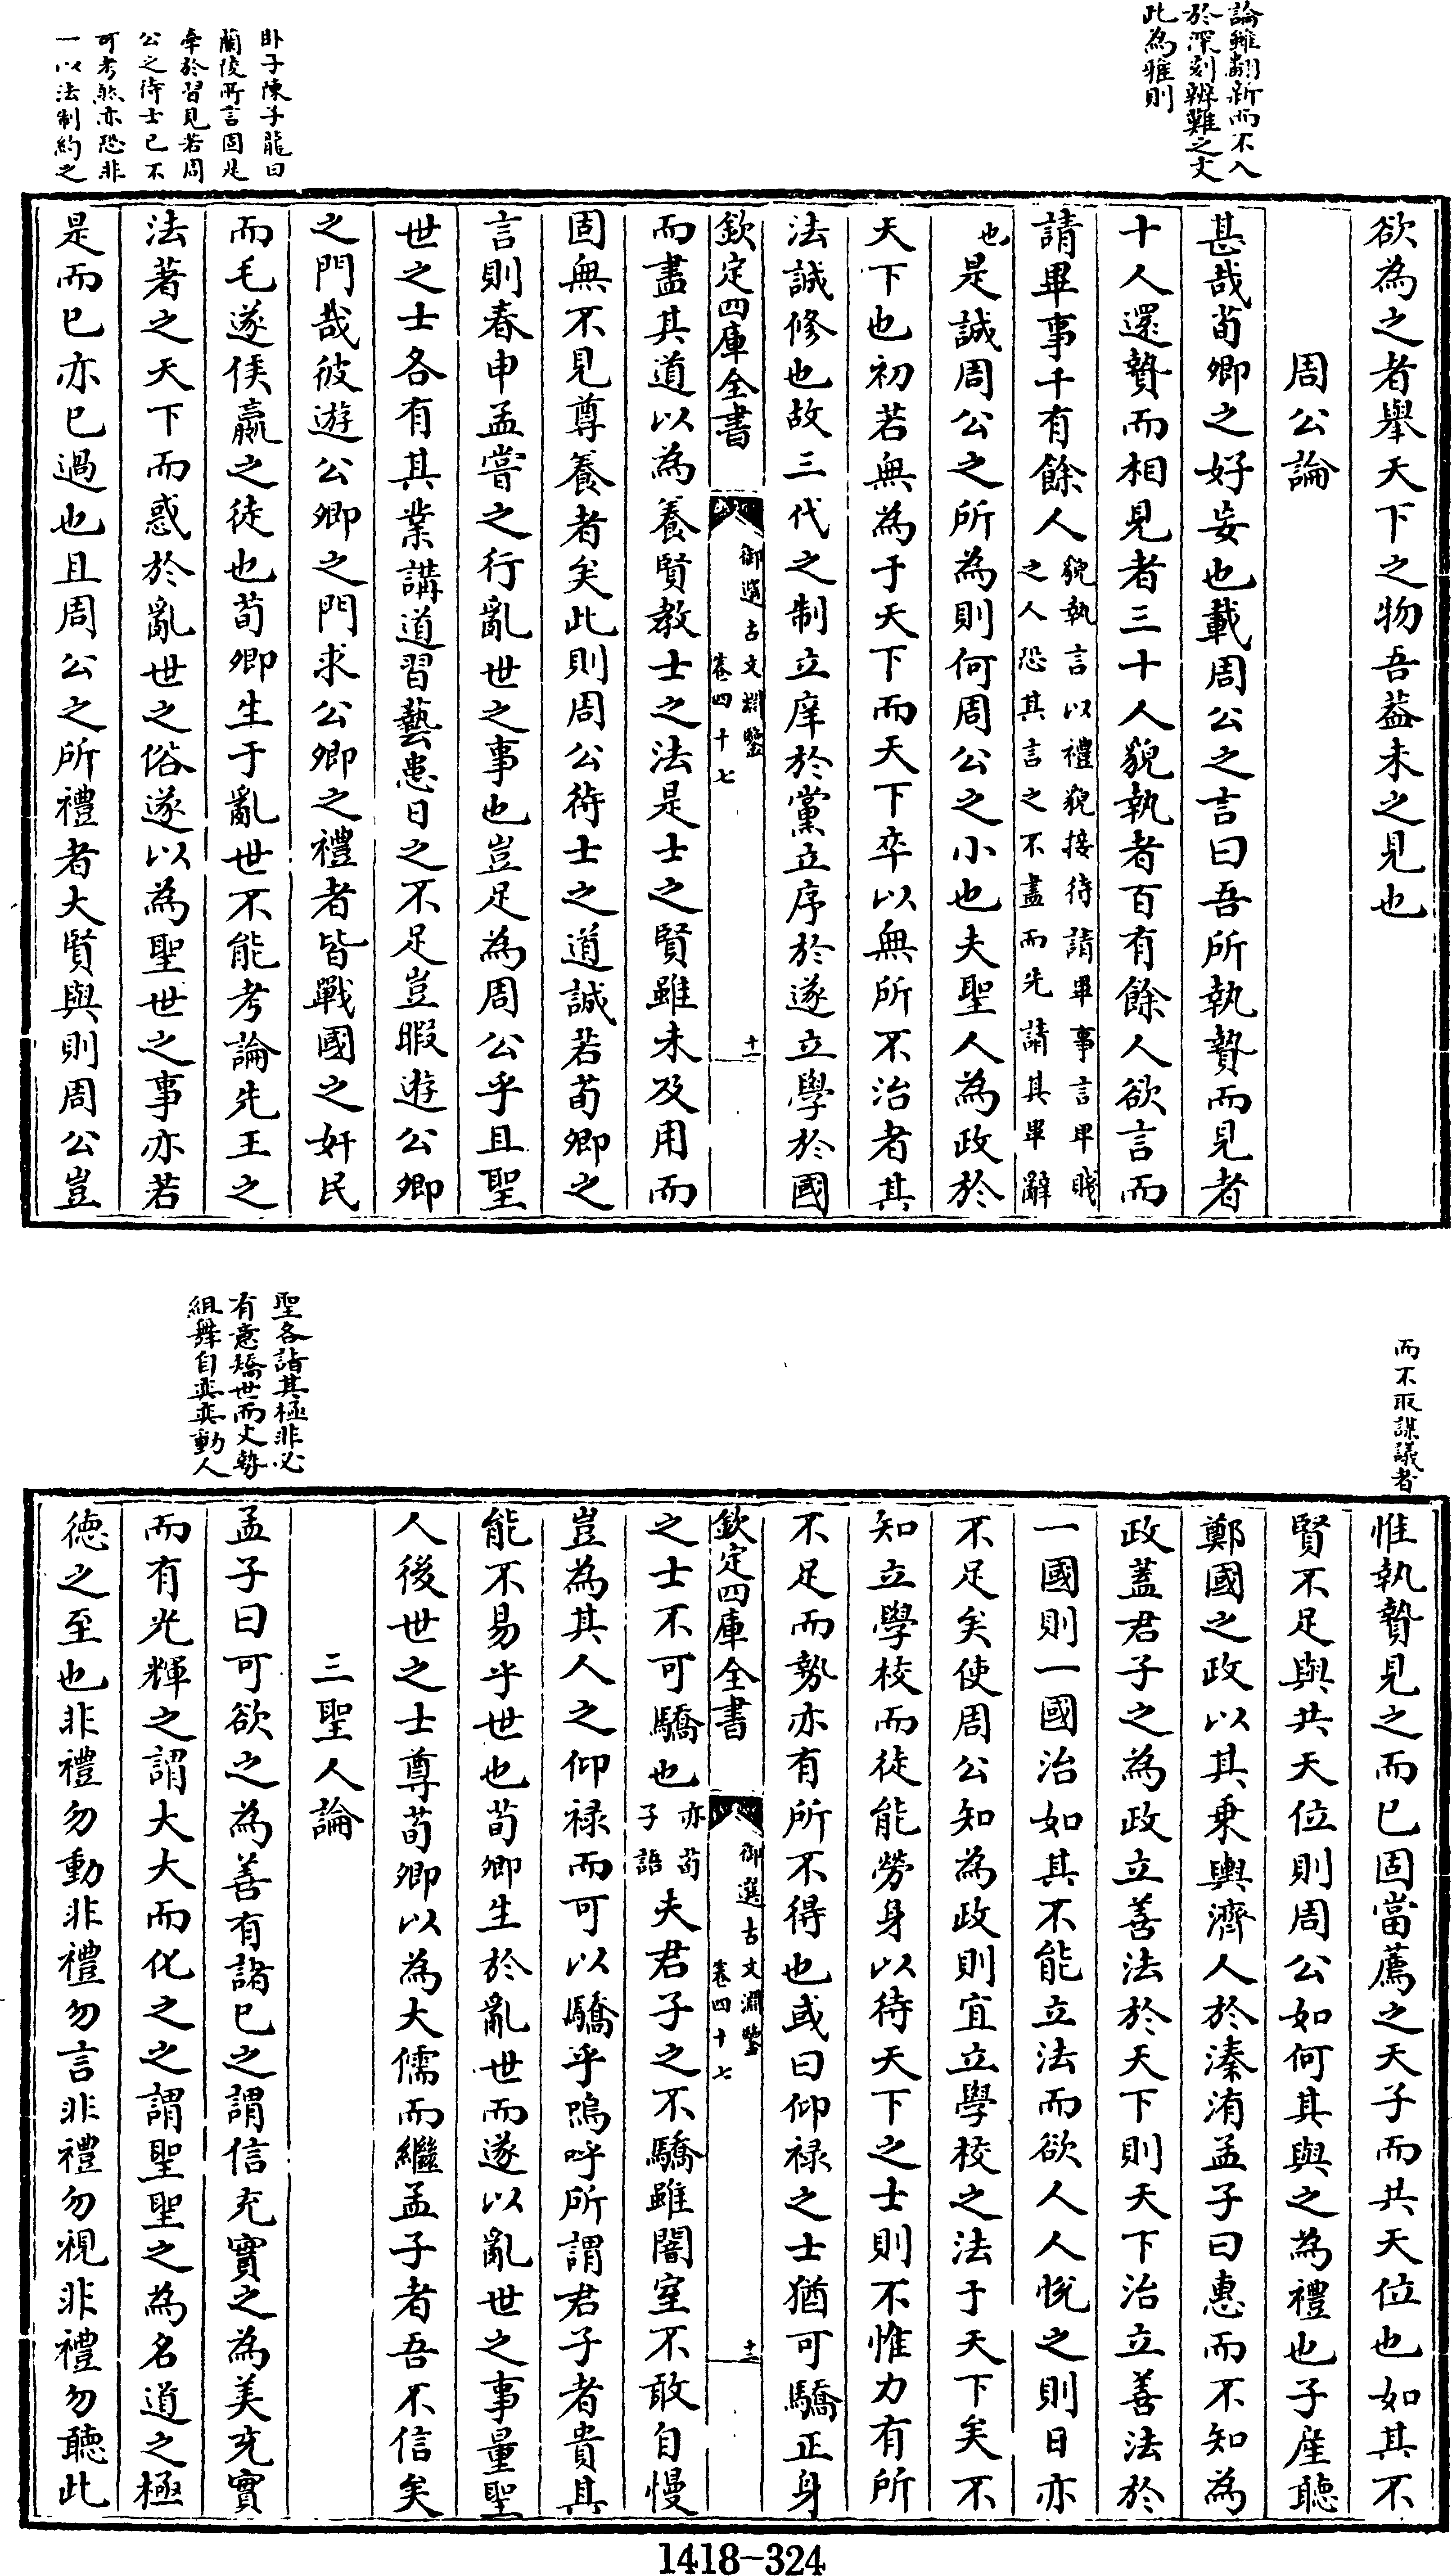 論雖翻新而不入
於深刻辨難之文
此為雅則
欲為之者舉天下之物吾葢未之見也
周公論
甚哉荀卿之好妄也載周公之言曰吾所執贄而見者
十人還贄而相見者三十人貌執者百有餘人欲言而
請畢事千有餘人貌執言以禮貌接待請畢事言卑賤
之人恐其言之不盡而先請其畢辭
也是誠周公之所為則何周公之小也夫聖人為政於
天下也初若無為于天下而天下卒以無所不治者其
法誠修也故三代之制立庠於黨立序於遂立學於國
欽定四庫全書
御選古文淵鑒
卷四十七
十一
而盡其道以為養賢教士之法是士之賢雖未及用而
固無不見尊養者矣此則周公待士之道誠若荀卿之
言則春申孟嘗之行亂世之事也豈足為周公乎且聖
世之士各有其業講道習藝患日之不足豈暇遊公卿
之門哉彼遊公卿之門求公卿之禮者皆戰國之奸民
而毛遂侯嬴之徒也荀卿生于亂世不能考論先王之
法著之天下而惑於亂世之俗遂以為聖世之事亦若
是而已亦已過也且周公之所禮者大賢與則周公豈
卧子陳子龍曰
蘭俊所言固是
牽於習見若周
公之待士已不
可考然亦恐非
一以法制約之
而不取謀議者
惟執贄見之而已固當薦之天子而共天位也如其不
賢不足與共天位則周公如何其與之為禮也子產聽
鄭國之政以其乗輿濟人於溱洧孟子曰惠而不知為
政蓋君子之為政立善法於天下則天下治立善法於
一國則一國治如其不能立法而欲人人悅之則日亦
不足矣使周公知為政則宜立學校之法于天下矣不
知立學校而徒能勞身以待天下之士則不惟力有所
不足而勢亦有所不得也或曰仰禄之士猶可驕正身
欽定四庫全書
御選古文淵鑒
卷四十七
十二
之士不可驕也亦荀
子語
夫君子之不驕雖闇室不敢自慢
豈為其人之仰禄而可以驕乎嗚呼所謂君子者貴其
能不易乎世也荀卿生於亂世而遂以亂世之事量聖
人後世之士尊荀卿以為大儒而繼孟子者吾不信矣
三聖人論
孟子曰可欲之為善有諸已之謂信充實之為美充實
而有光輝之謂大大而化之之謂聖聖之為名道之極
德之至也非禮勿動非禮勿言非禮勿視非禮勿聽此
聖各詣其極非必
有意矯世而文勢
組舞自奕奕動人
1418-324